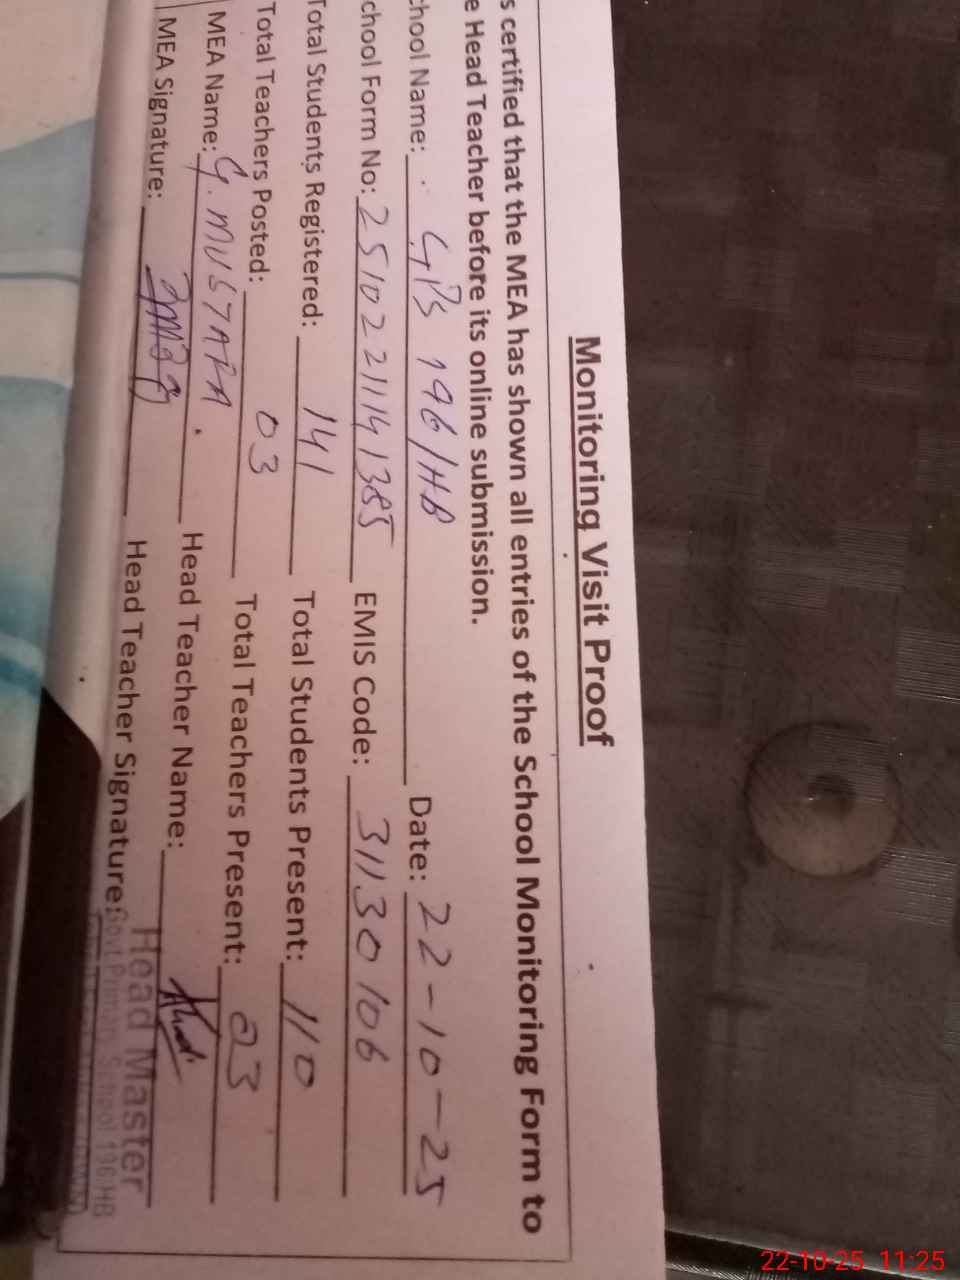 Monitoring Visit Proof
s certified that the MEA has shown all entries of the School Monitoring Form to
e Head Teacher before its online submission.
chool Name: GPS 196/HB Date: 22-10-25
chool Form No: 25102211141385 EMIS Code: 31130106
Total Students Registered: 141 Total Students Present: 110
Total Teachers Posted: 03 Total Teachers Present: 03
MEA Name: G. MUSTAFA Head Teacher Name:
MEA Signature: Head Teacher Signature:
Head Master
Govt. Primary School 196/HB
22-10-25 11:25